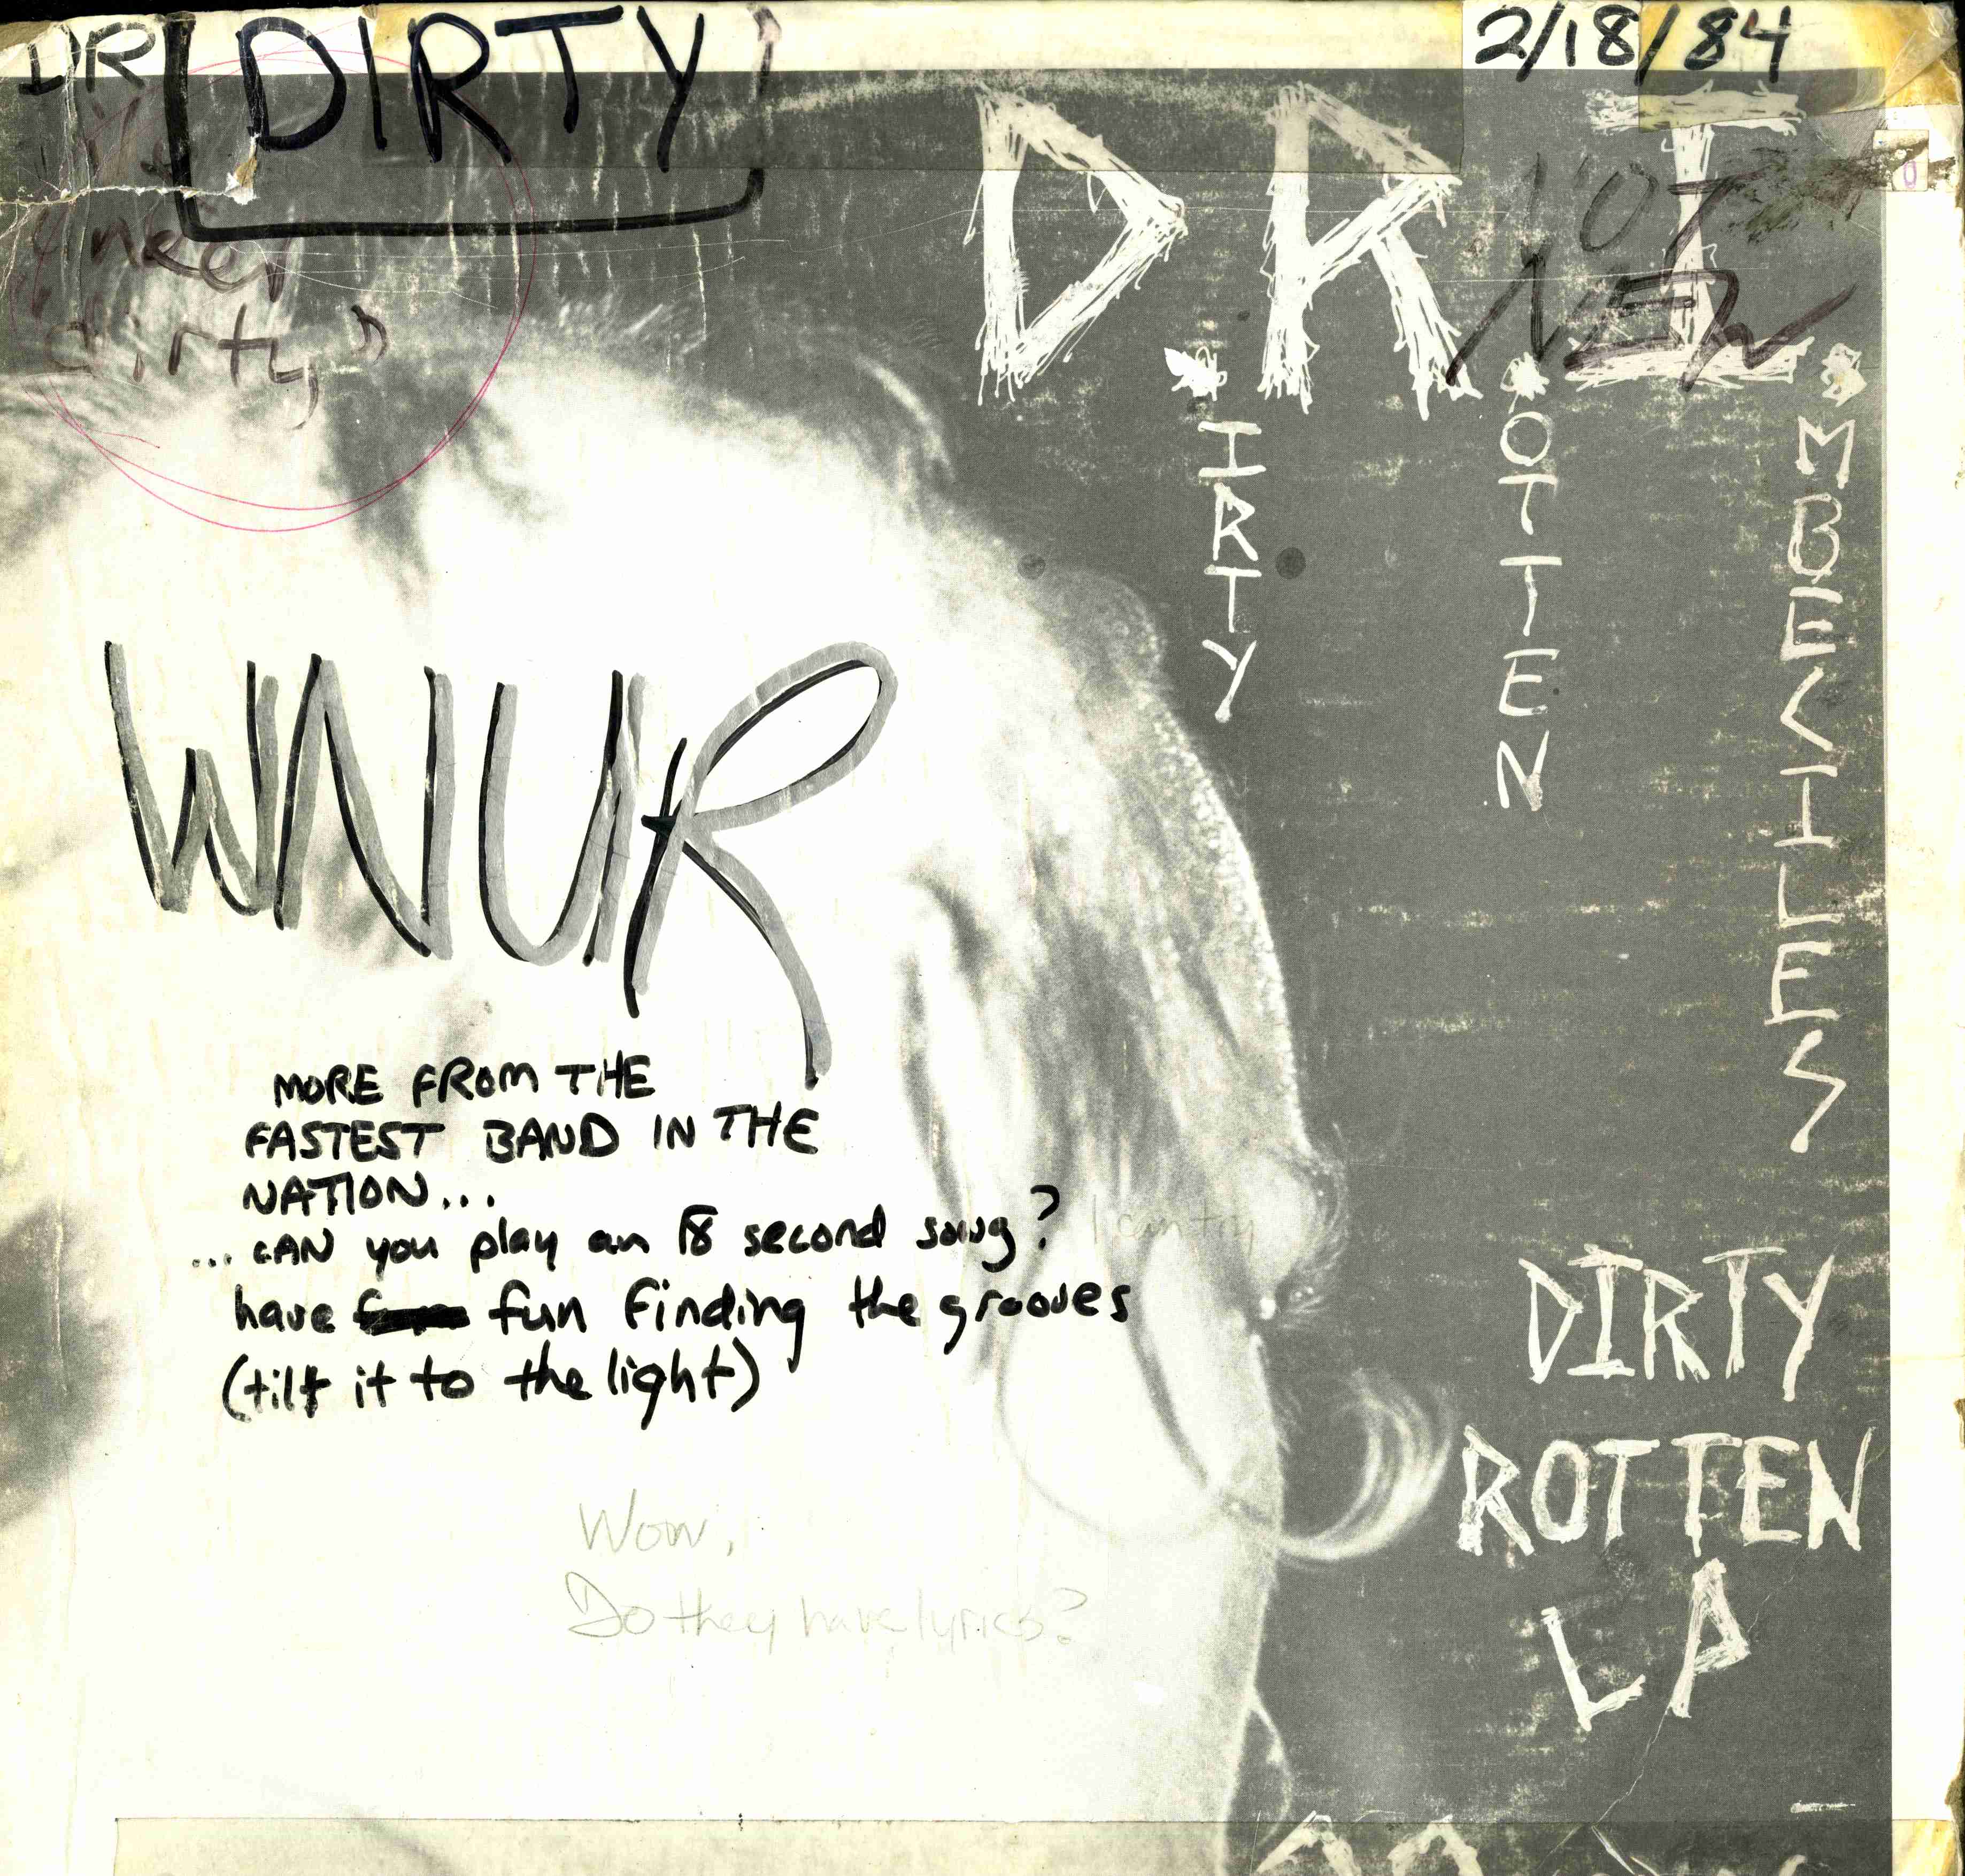 DR
DIRTY
2/18/84
D.R.I.
NOT
NEW
dirty"
IRTY
OTTEN
MBECILES
WNUR
MORE FROM THE
FASTEST BAND IN THE
NATION...
...CAN you play an 18 second song? I can try
have fun finding the grooves
(tilt it to the light)
Wow,
Do they have lyrics?
DIRTY
ROTTEN
LP